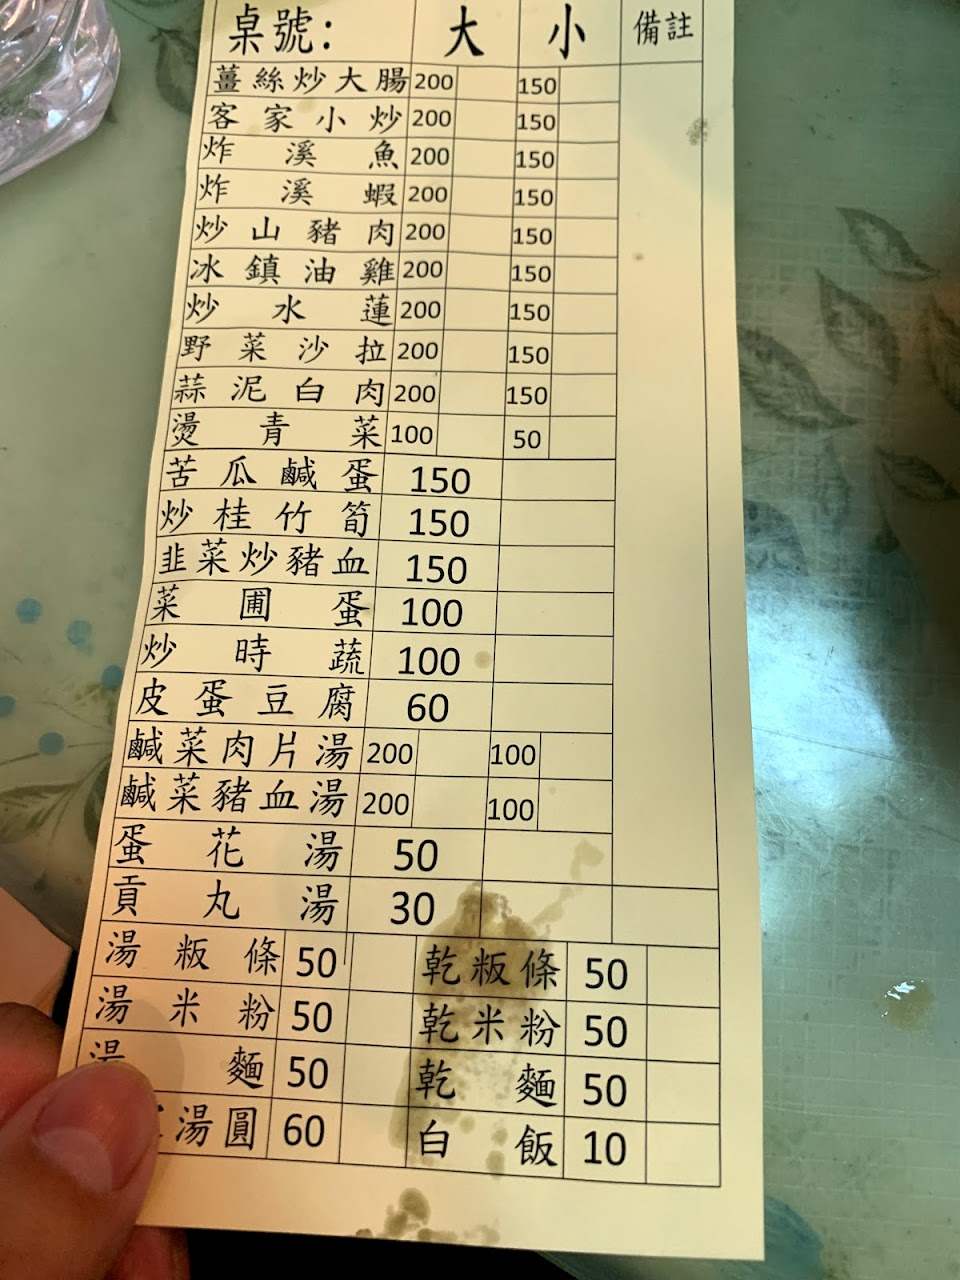 桌號: 大 小 備註
薑絲炒大腸 200 150
客家小炒 200 150
炸溪魚 200 150
炸溪蝦 200 150
炒山豬肉 200 150
冰鎮油雞 200 150
炒水蓮 200 150
野菜沙拉 200 150
蒜泥白肉 200 150
燙青菜 100 50
苦瓜鹹蛋 150
炒桂竹筍 150
韭菜炒豬血 150
菜圃蛋 100
炒時蔬 100
皮蛋豆腐 60
鹹菜肉片湯 200 100
鹹菜豬血湯 200 100
蛋花湯 50
貢丸湯 30
湯粄條 50 乾粄條 50
湯米粉 50 乾米粉 50
湯麵 50 乾麵 50
湯圓 60 白飯 10